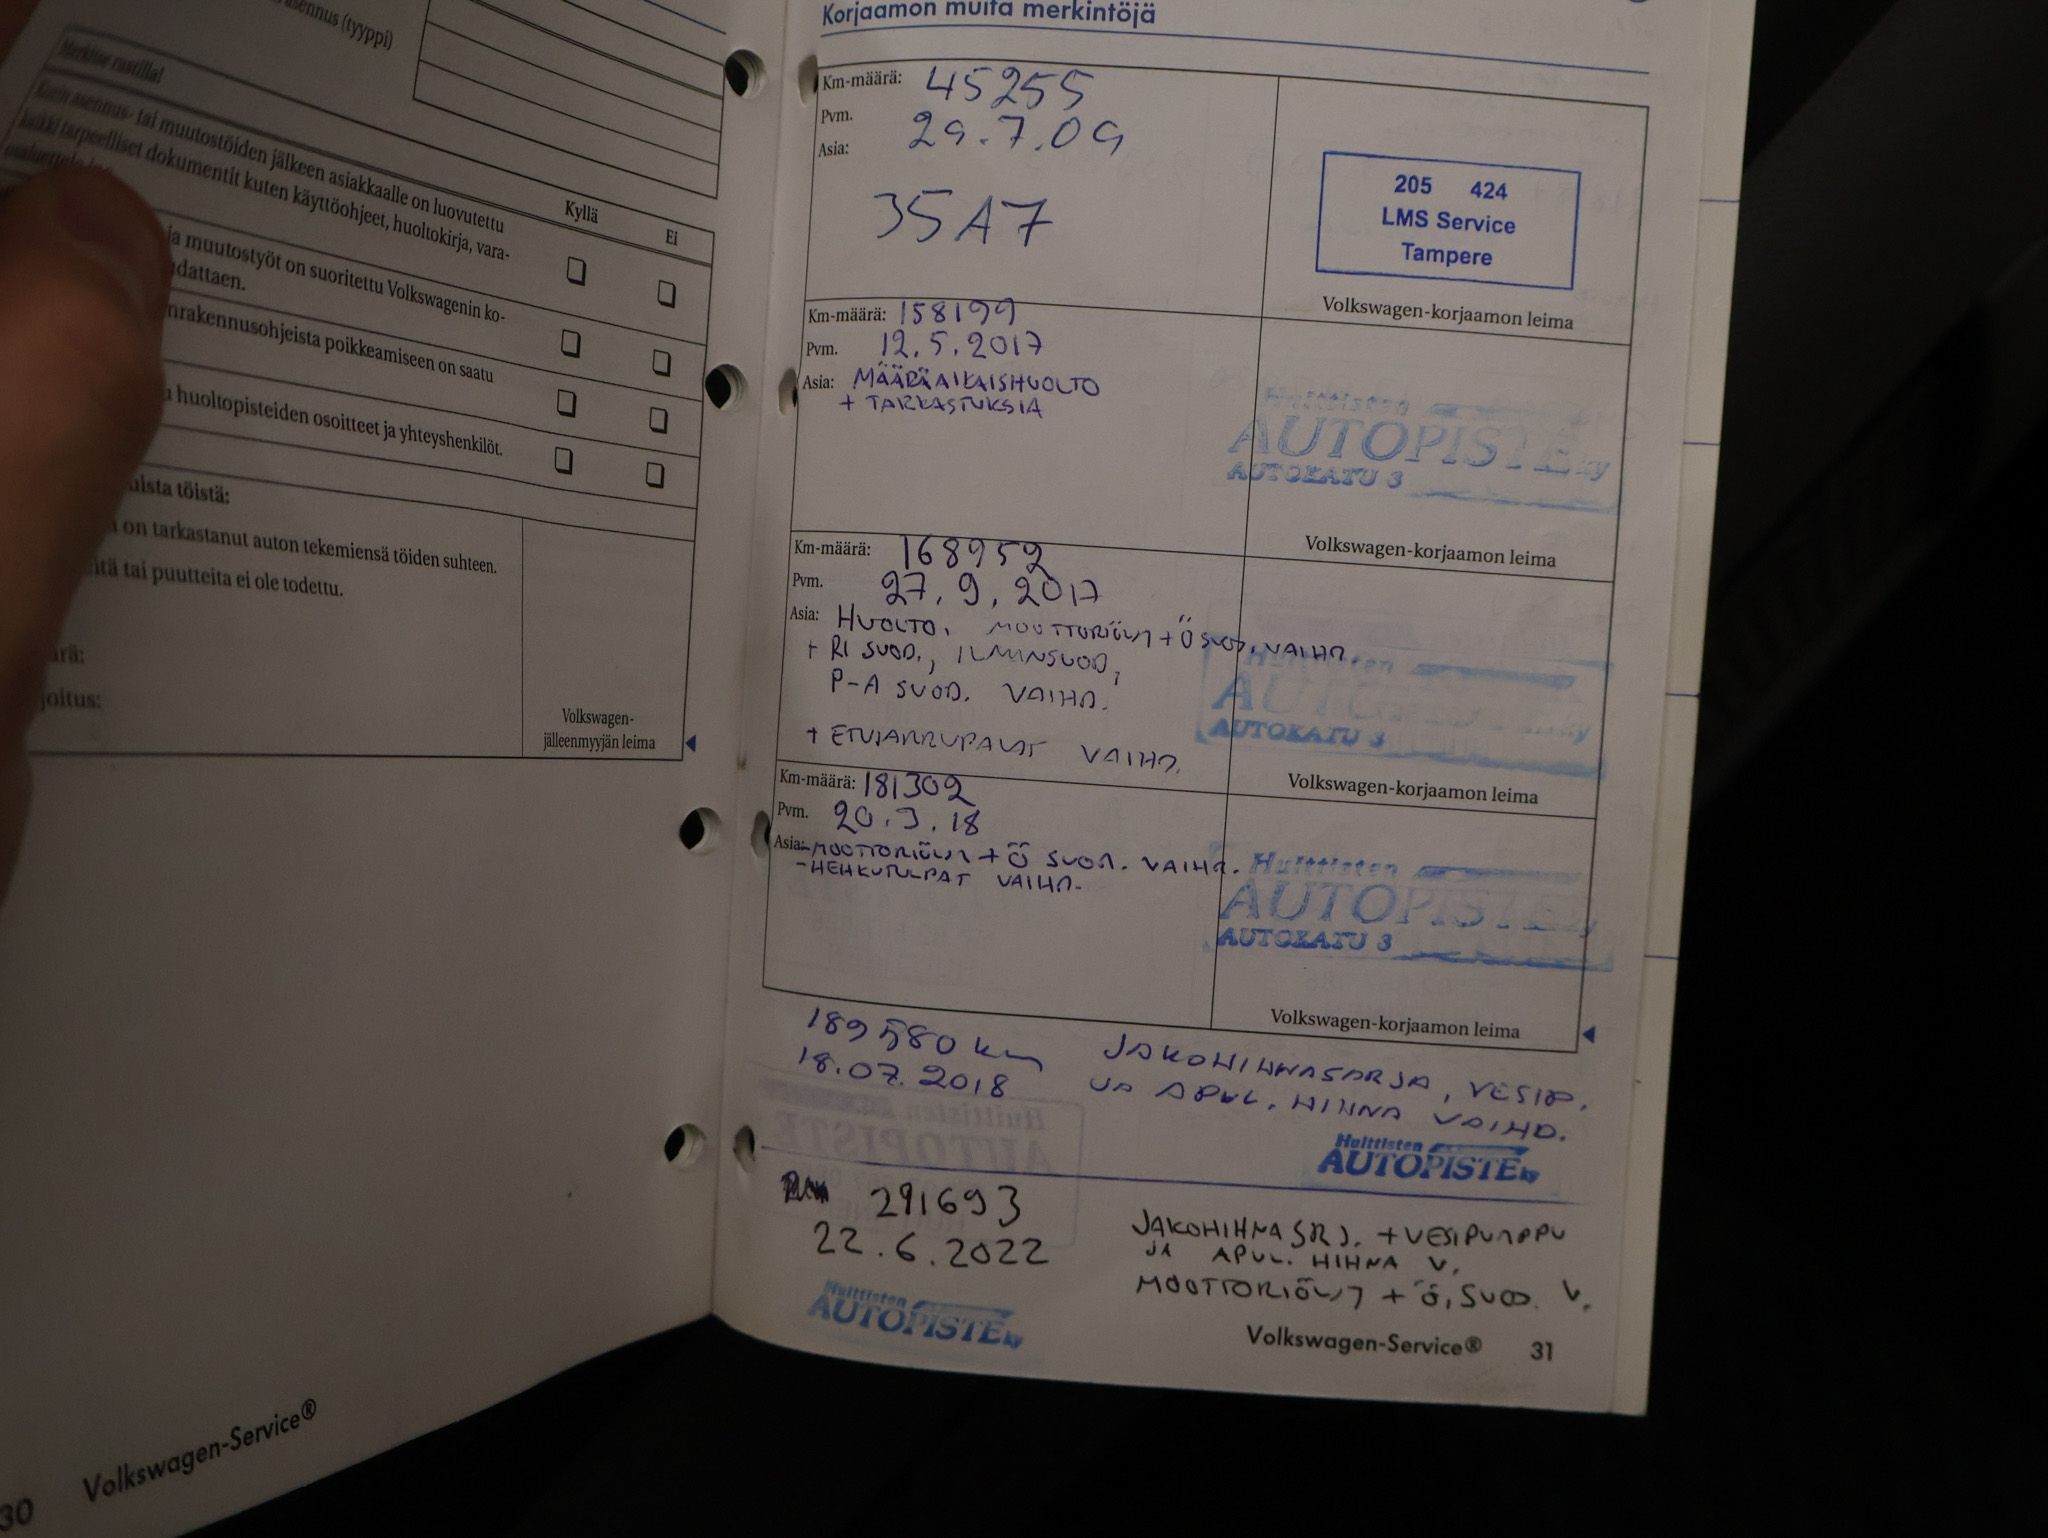 asennus (tyyppi)
Merkitse rastilla!
Kuin asennus- tai muutostöiden jälkeen asiakkaalle on luovutettu
kaikki tarpeelliset dokumentit kuten käyttöohjeet, huoltokirja, vara-
Kyllä
Ei
ja muutostyöt on suoritettu Volkswagenin ko-
udattaen.
nrakennusohjeista poikkeamiseen on saatu
huoltopisteiden osoitteet ja yhteyshenkilöt.
uista töistä:
on tarkastanut auton tekemiensä töiden suhteen.
tai puutteita ei ole todettu.
Volkswagen-
jälleenmyyjän leima
30 Volkswagen-Service®
Korjaamon muita merkintöjä
Km-määrä: 45255
Pvm. 29.7.09
Asia:
35A7
205 424
LMS Service
Tampere
Volkswagen-korjaamon leima
Km-määrä: 158199
Pvm. 12.5.2017
Asia: MÄÄRÄAIKAISHUOLTO
+ TARKASTUKSIA
Huittisten
AUTOPISTE ky
AUTOKATU 3
Volkswagen-korjaamon leima
Km-määrä: 168952
Pvm. 27.9.2017
Asia: HUOLTO, MOOTTORIÖLJY + Ö SUOD. VAIHD.
+ RI SUOD., ILMANSUOD,
P-A SUOD. VAIHD.
+ ETUJARRUPALAT VAIHD.
Huittisten
AUTOPISTE ky
AUTOKATU 3
Volkswagen-korjaamon leima
Km-määrä: 181302
Pvm. 20.3.18
Asia: - MOOTTORIÖLJY + Ö SUOD. VAIHD.
- HEHKUTULPAT VAIHD.
Huittisten
AUTOPISTE ky
AUTOKATU 3
Volkswagen-korjaamon leima
189580 km
18.07.2018
JAKOHIHNASARJA, VESIP.
JA APUL. HIHNA VAIHD.
Huittisten
AUTOPISTE ky
291693
22.6.2022
JAKOHIHNA SRJ. + VESIPUMPPU
JA APUL. HIHNA V.
MOOTTORIÖLJY + Ö, SUOD. V.
Huittisten
AUTOPISTE ky
Volkswagen-Service® 31